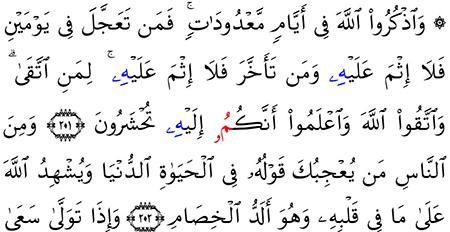 ۞ وَاَذْكُرُواْ اُللَّهَ فِى أَيَّامٍ مَّعْدُودَٰتٍ ۚ فَمَن تَعَجَّلَ فِى يَوْمَيْنِ
فَلَا إِثْمَ عَلَيْهِۦ وَمَن تَأَخَّرَ فَلَا إِثْمَ عَلَيْهِۦ ۚ لِمَنِ اِتَّقَىٰ ۗ
وَاَتَّقُواْ اُللَّهَ وَاَعْلَمُواْ أَنَّكُمُۥ إِلَيْهِۦ تُحْشَرُونَ ﴿٢٠١﴾ وَمِنَ
اَلنَّاسِ مَن يُعْجِبُكَ قَوْلُهُۥ فِى اِلْحَيَوٰةِ اِلدُّنْيَا وَيُشْهِدُ اُللَّهَ
عَلَىٰ مَا فِى قَلْبِهِۦ وَهُوَ أَلَدُّ اُلْخِصَامِ ﴿٢٠٢﴾ وَإِذَا تَوَلَّىٰ سَعَىٰ